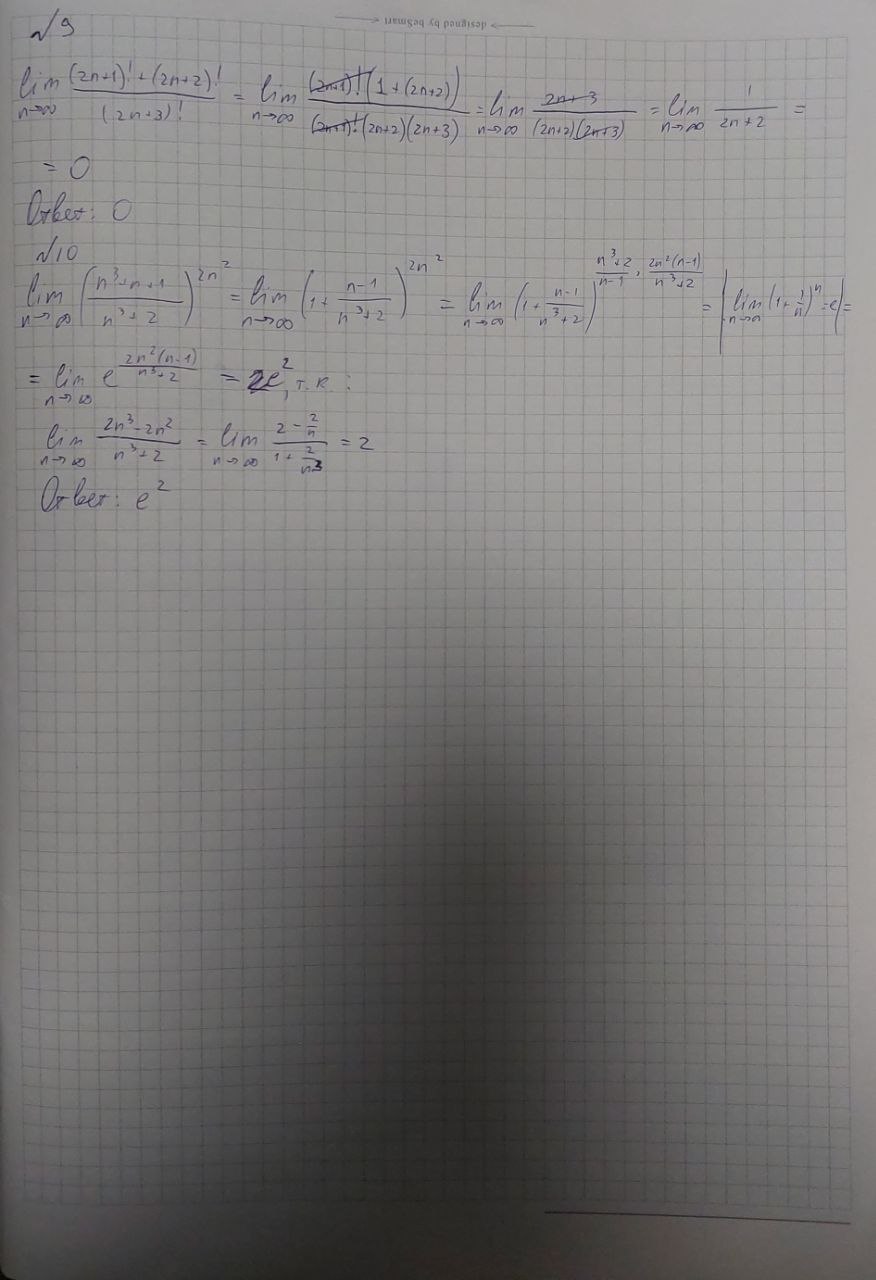 > designed by beSmart <
№9
lim n→∞ ((2n+1)! + (2n+2)!)/((2n+3)!) = lim n→∞ ((2n+1)!(1+(2n+2)))/((2n+1)!(2n+2)(2n+3)) = lim n→∞ (2n+3)/((2n+2)(2n+3)) = lim n→∞ 1/(2n+2) =
= 0
Ответ: 0
№10
lim n→∞ ((n³+n+1)/(n³+2))^(2n²) = lim n→∞ (1 + (n-1)/(n³+2))^(2n²) = lim n→∞ (1 + (n-1)/(n³+2))^((n³+2)/(n-1) · (2n²(n-1))/(n³+2)) = |lim n→∞ (1 + 1/n)^n = e| =
= lim n→∞ e^((2n²(n-1))/(n³+2)) = e², т.к:
lim n→∞ (2n³-2n²)/(n³+2) = lim n→∞ (2 - 2/n)/(1 + 2/n³) = 2
Ответ: e²